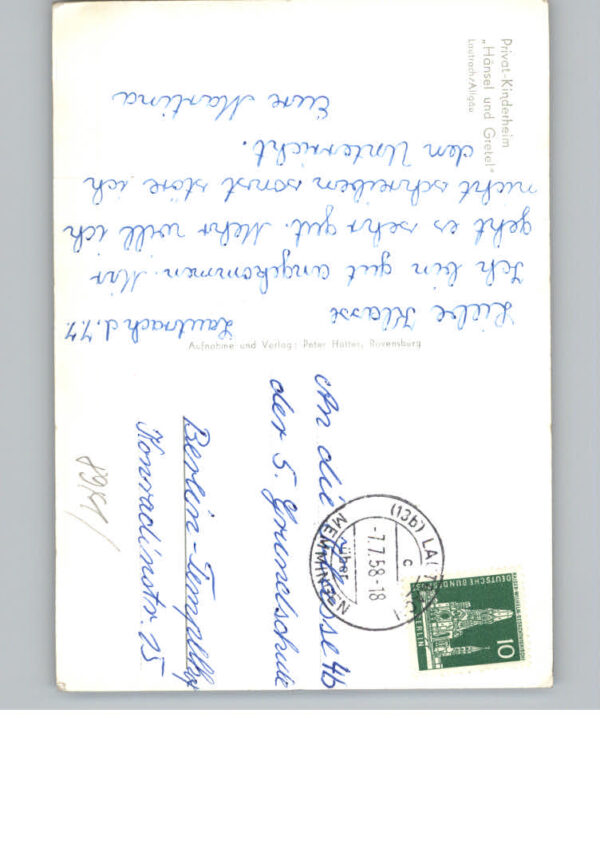 Privat-Kinderheim
„Hänsel und Gretel"
Lautrach/Allgäu
Lautrach d. 7.7.
Liebe Klasse
Ich bin gut angekommen. Mir
geht es sehr gut. Mehr will ich
nicht schreiben sonst störe ich
den Unterricht.
Eure Martina
Aufnahme und Verlag: Peter Hütter, Ravensburg
An die Klasse 4b
der 5. Grundschule
Berlin-Tempelhof
Konradinstr. 25
(13b) LAUTRACH
über
MEMMINGEN
-7.7.58-18
c
DEUTSCHE BUNDESPOST
BERLIN
10